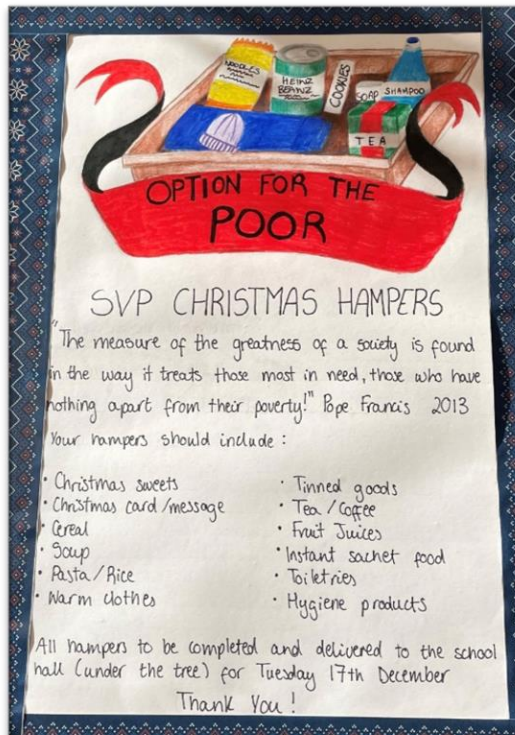 NOODLES
HEINZ
BEANZ
COOKIES
SOAP
SHAMPOO
TEA
OPTION FOR THE
POOR
SVP CHRISTMAS HAMPERS
"The measure of the greatness of a society is found
in the way it treats those most in need, those who have
nothing apart from their poverty!" Pope Francis 2013
Your hampers should include :
• Christmas sweets
• Christmas card/message
• Cereal
• Soup
• Pasta/Rice
• Warm clothes
• Tinned goods
• Tea/Coffee
• Fruit Juices
• Instant sachet food
• Toiletries
• Hygiene products
All hampers to be completed and delivered to the school
hall (under the tree) for Tuesday 17th December
Thank You !